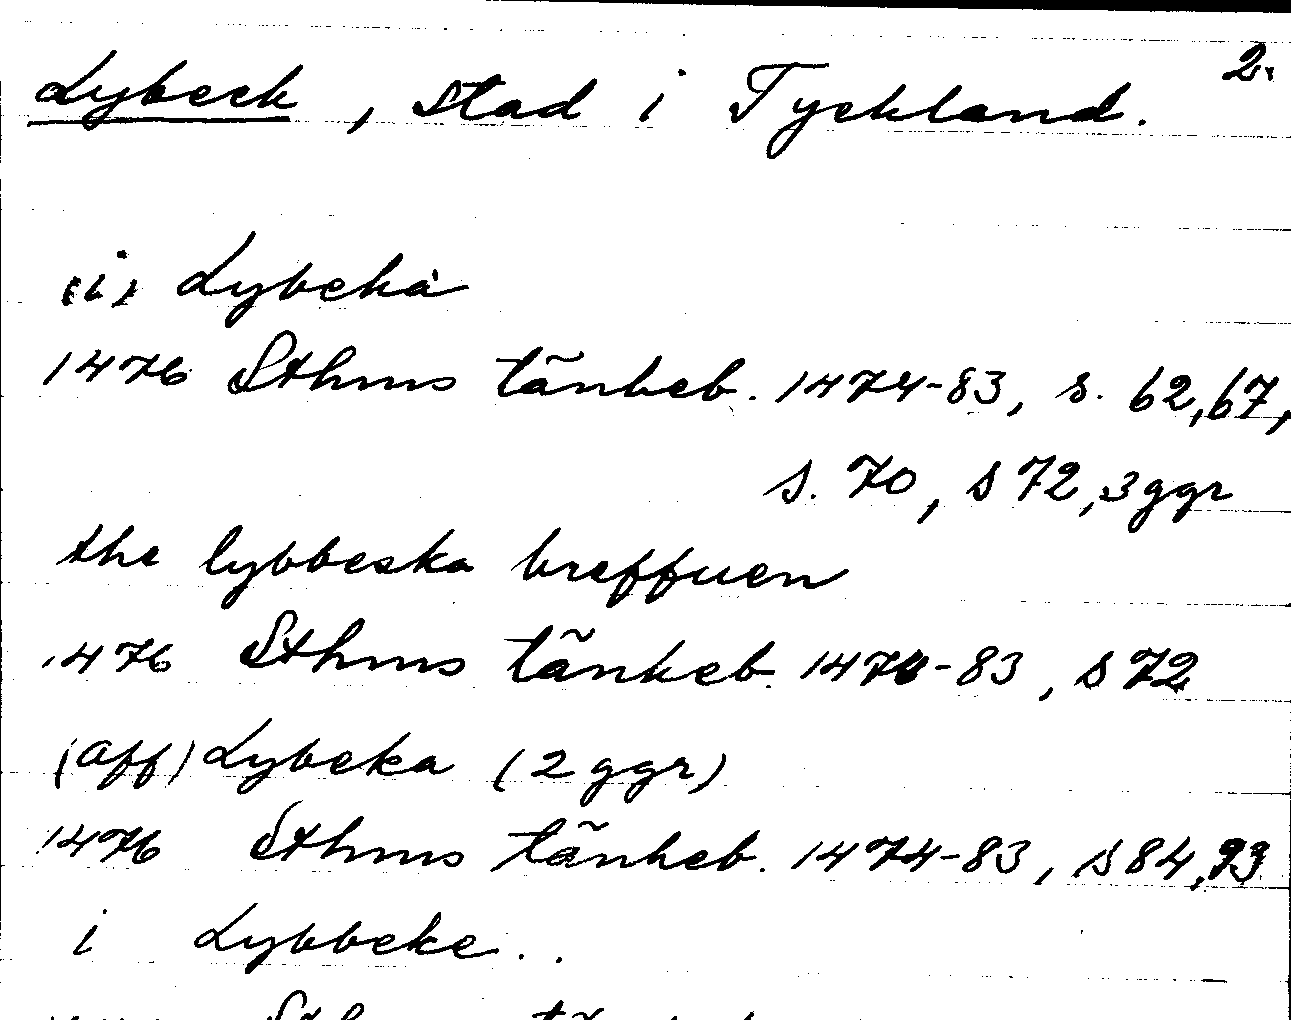 2.
Lybeck, stad i Tyckland.
(i) Lybeka
1476 Sthms tänkeb. 1474-83, s. 62,67,
s. 70, s 72, 3 ggr
the lybbeska breffuen
1476 Sthms tänkeb. 1474-83, s 72
(aff) Lybeka (2 ggr)
1476 Sthms tänkeb. 1474-83, s 84, 93
i Lybbeke..